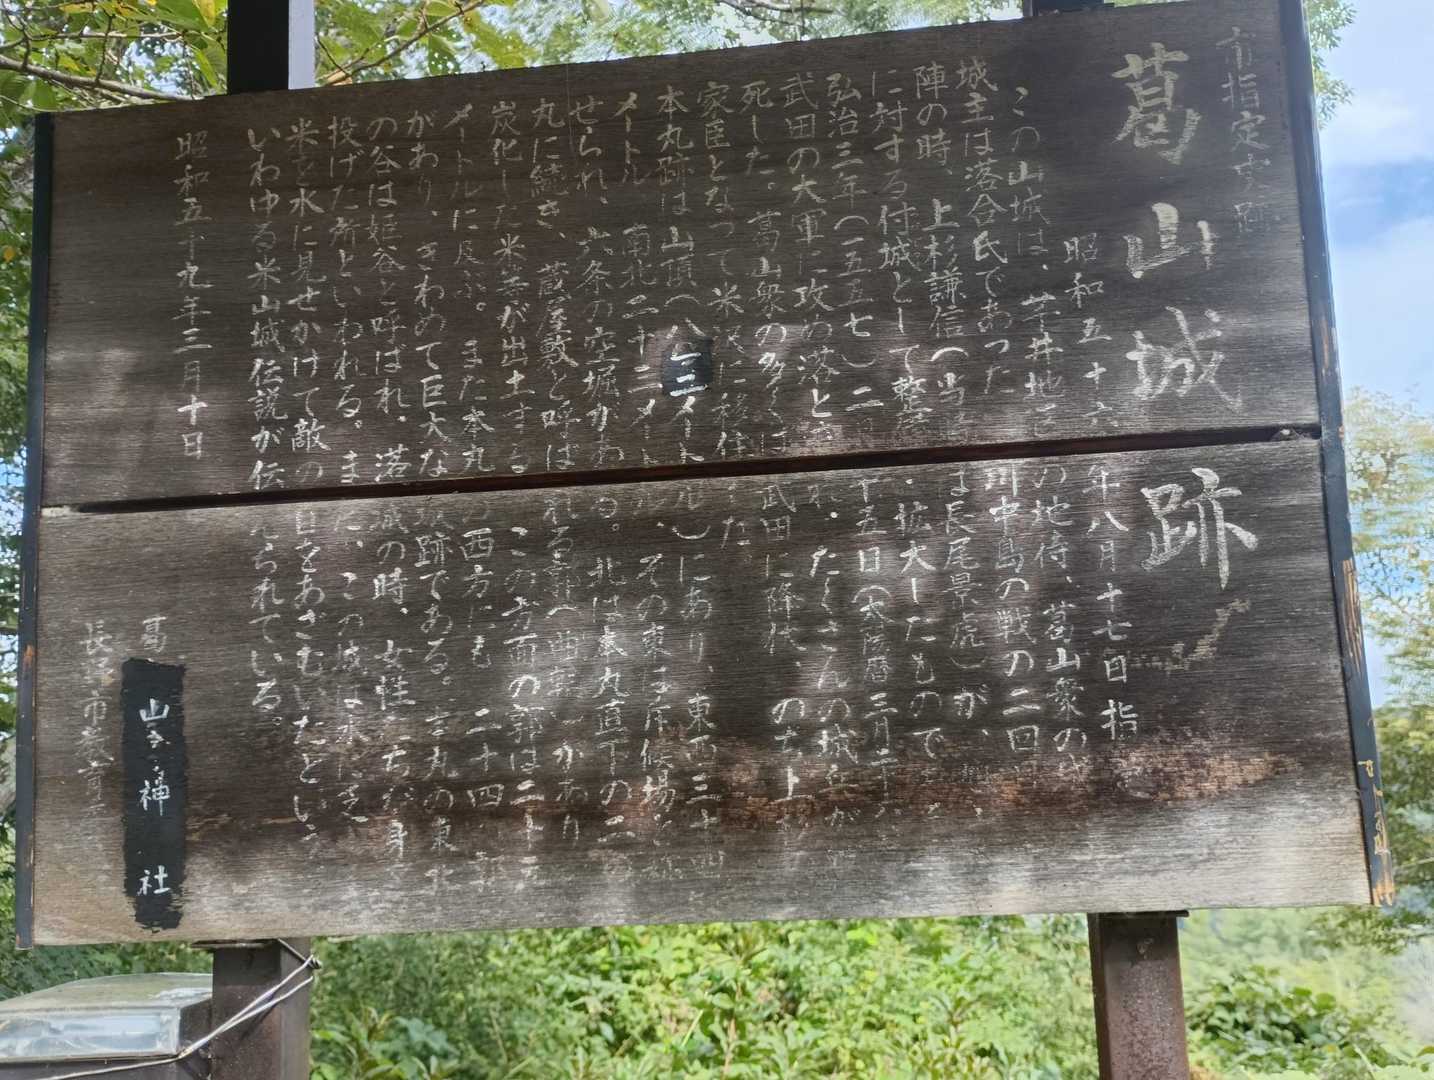 市指定史跡
葛山城跡
昭和五十六年八月十七日指定
この山城は、芋井地区の地侍、葛山衆の
城主は落合氏であった 川中島の戦の二回
陣の時、上杉謙信(当時は長尾景虎)が、
に対する付城として整 ・拡大したもので
弘治三年(一五五七)二 十五日(太陽暦三月二十
武田の大軍に攻め落と れ、たくさんの城兵が
死した。葛山衆の多くは武田に降伏、のち上
家臣となって米沢に移住 た
本丸跡は山頂(八一二メートル)にあり、東西三十四
メートル 南北二十二メートル、その東は斥候場と
せられ、六条の空堀がある。北は本丸直下の二の
丸に続き、蔵屋敷と呼ばれる郭(曲輪)があり
炭化した米 が出土する この方面の郭は二十
メートルに及ぶ。また本丸の西方にも 二十四
があり、きわめて巨大な 跡である。 丸の東北
の谷は姫谷と呼ばれ、落城の時、女性たちが身を
投げた所といわれる。また、この城は水に
米を水に見せかけて敵の目をあざむいたという
いわゆる米山城伝説が伝えられている。
昭和五十九年三月十日
葛山神社
長野市教育